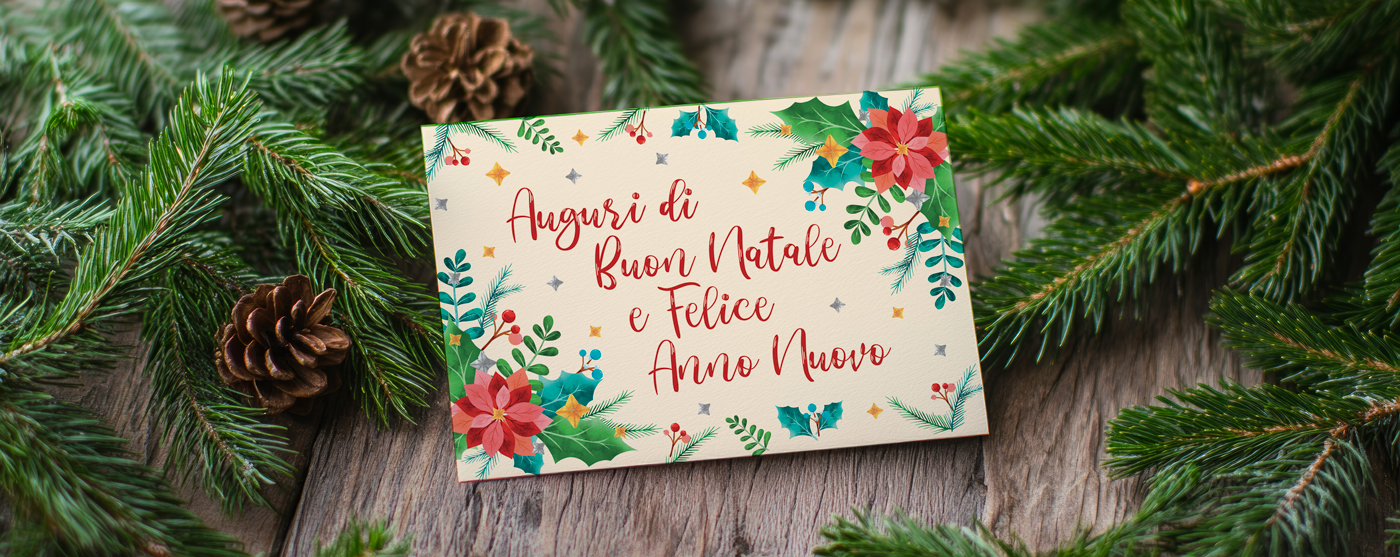 Auguri di
Buon Natale
e Felice
Anno Nuovo